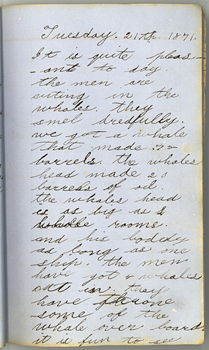 Tuesday. 21th. 1871.
It is quite pleas-
-ant to day
the men are
cuting in the
whales. they
smel dredfully.
we got a whale
that made
barrels. the whales
head made 20
barrels of oil.
the whales head
is as big as
rooms.
and his boddy
as long as one
ship. the men
have got whales
in. they
have throne
some of the
whale over board
it is fun to see